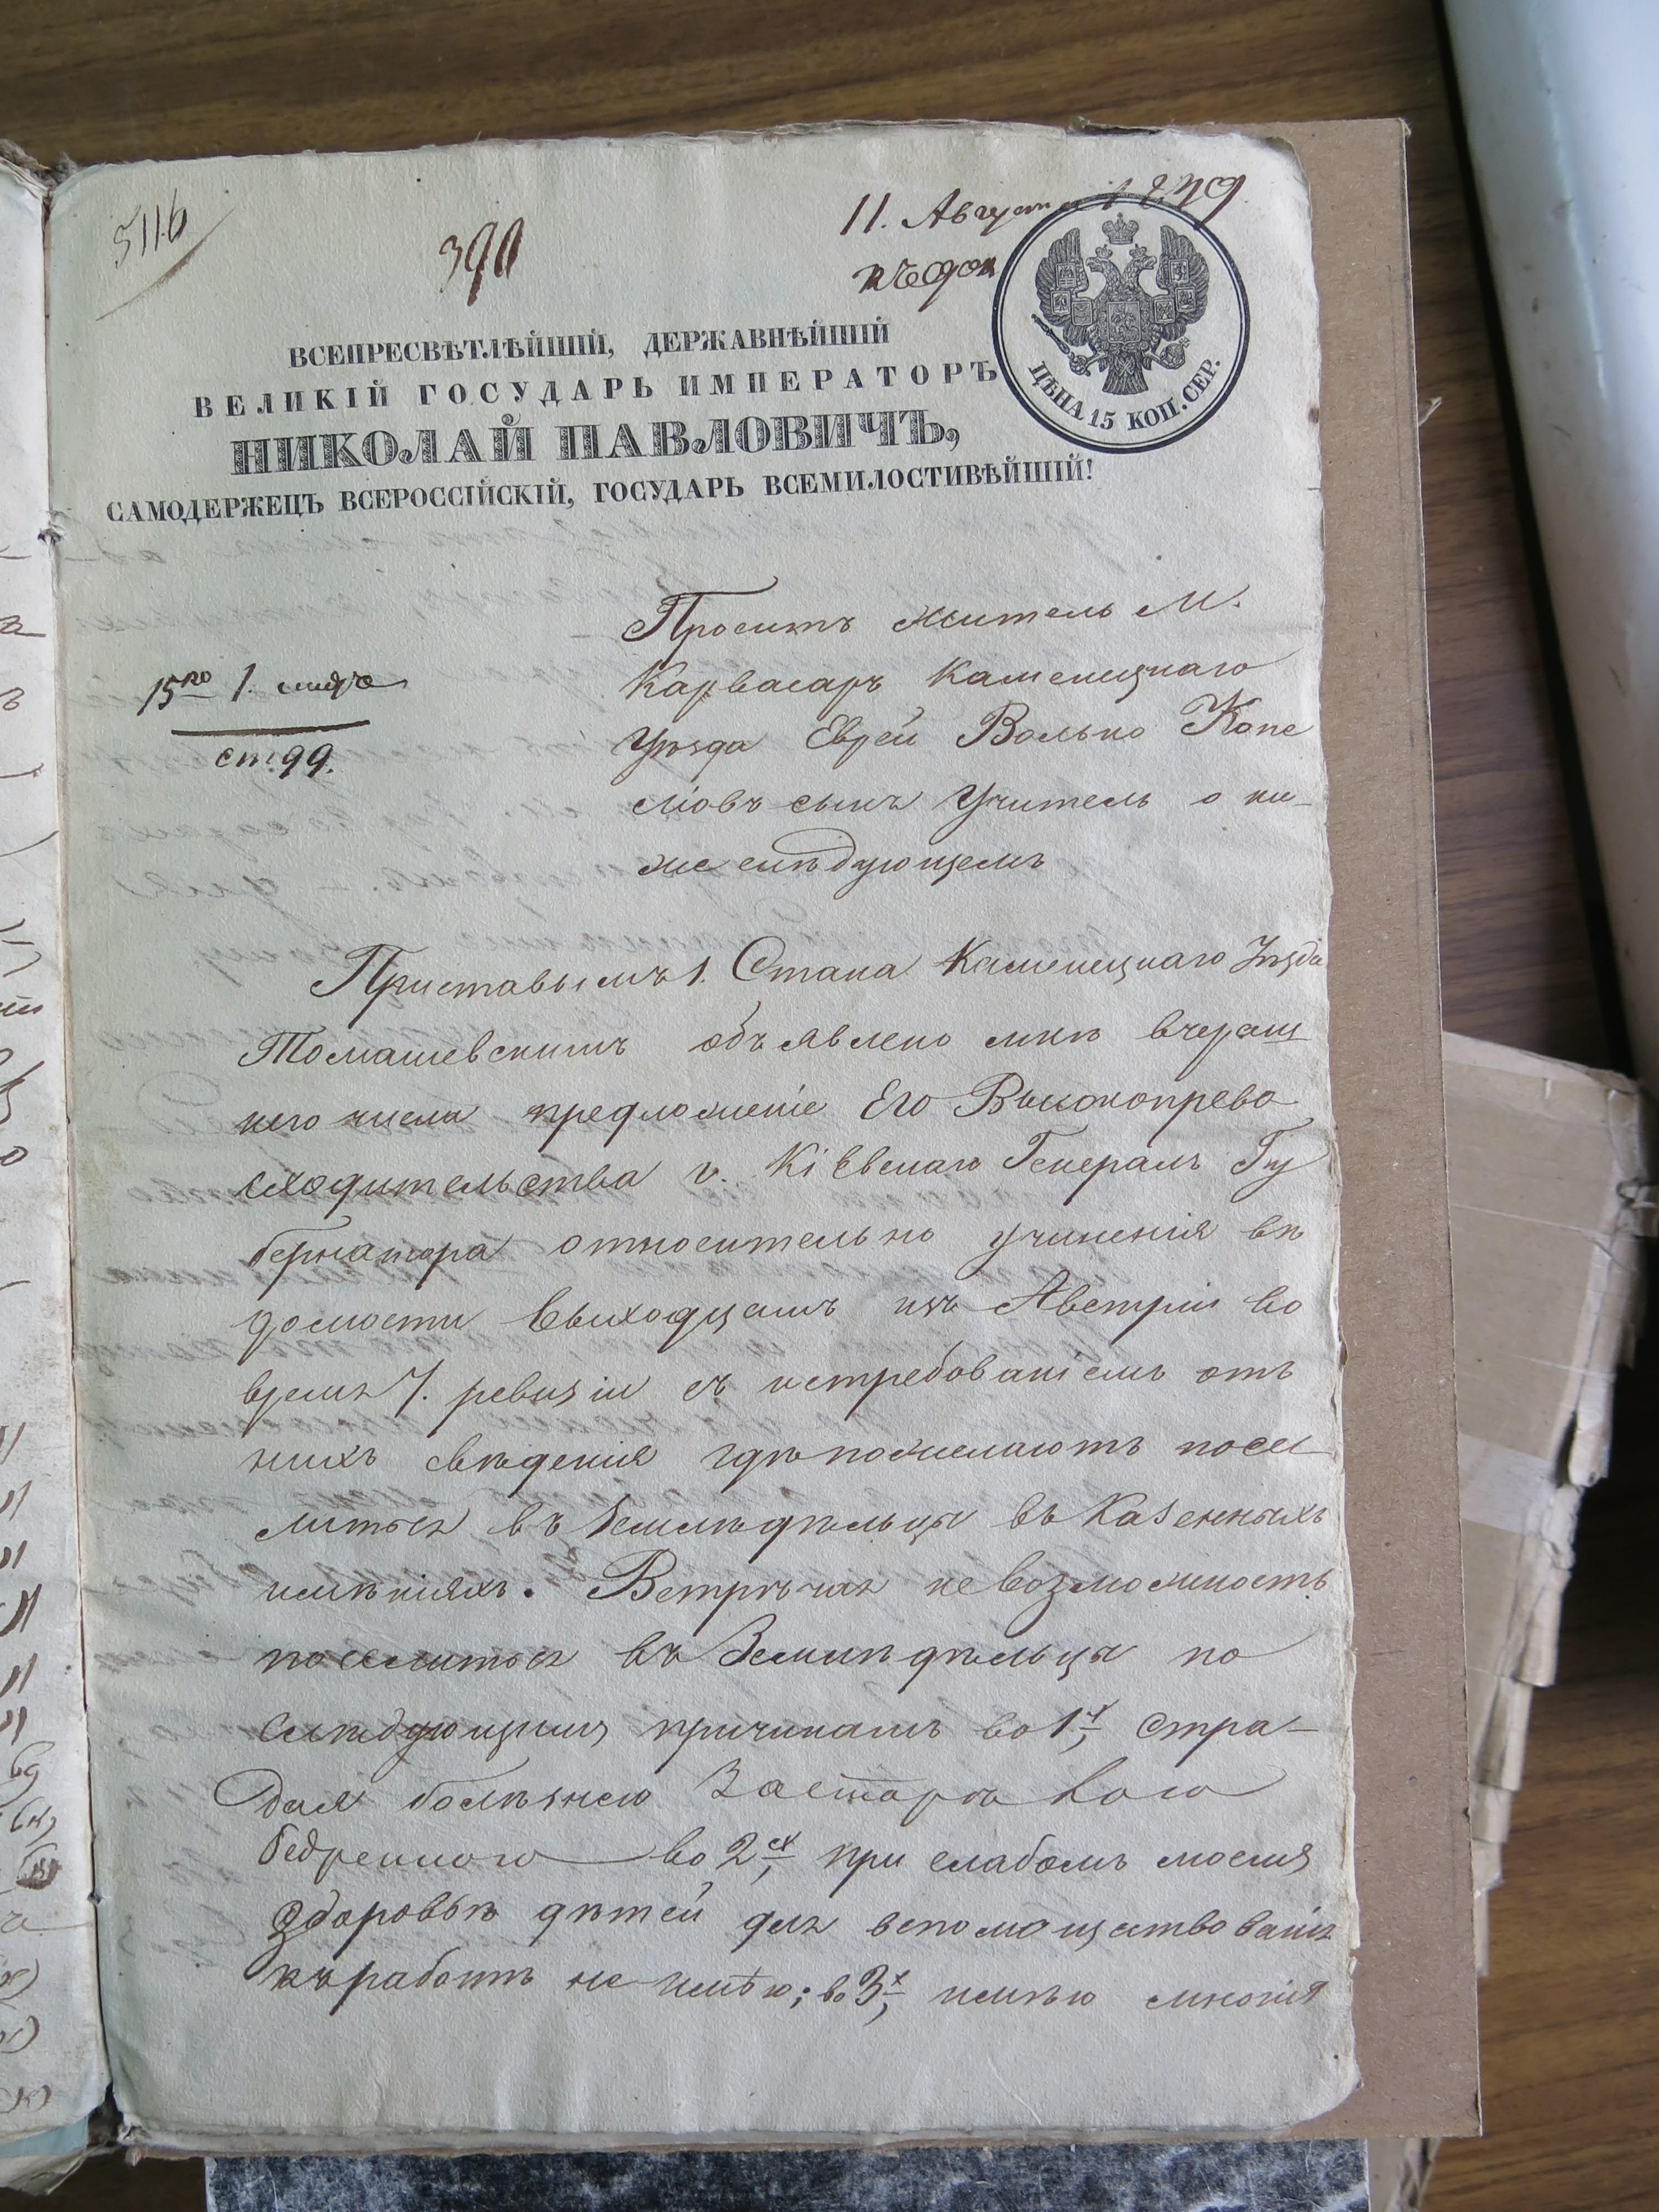 5116
390
11. Августа 1849.
ЦѢНА 15 КОП. СЕР.
ВСЕПРЕСВѢТЛѢЙШІЙ, ДЕРЖАВНѢЙШІЙ
ВЕЛИКІЙ ГОСУДАРЬ ИМПЕРАТОРЪ
НИКОЛАЙ ПАВЛОВИЧЪ,
САМОДЕРЖЕЦЪ ВСЕРОССІЙСКІЙ, ГОСУДАРЬ ВСЕМИЛОСТИВѢЙШІЙ!
Проситъ житель М.
Карвасаръ Каменецкаго
15го 1.
Уѣзда Еврей Волько Копе
ст. 99.
ліовъ сынъ Учитель о ни-
жеслѣдующемъ
Приставымъ 1. Стана Каменецкаго Уѣзда
Томашевскимъ объявлено мнѣ вчераш
него числа предложеніе Его Высокопрево
сходительства г. Кіевскаго Генералъ Гу
бернатора относительно учиненія вѣ
домости выходцамъ изъ Австріи во
время 7. ревизіи съ истребованіемъ отъ
нихъ свѣденія гдѣ пожелаютъ посе
литься въ Земледѣльцы въ Казенныхъ
имѣніяхъ. Встрѣчая невозможность
поселиться въ Земледѣльцы по
слѣдующимъ причинамъ во 1х, стра-
дая болѣзнею Застарѣлою
бедренною во 2х, при слабомъ моемъ
здоровьѣ дѣтей для вспомоществованія
къ работѣ не имѣю; во 3х, имѣю многія